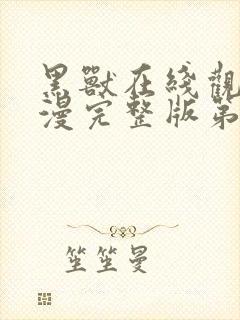 黑獸在綫觀
漫完整版第
笙笙曼